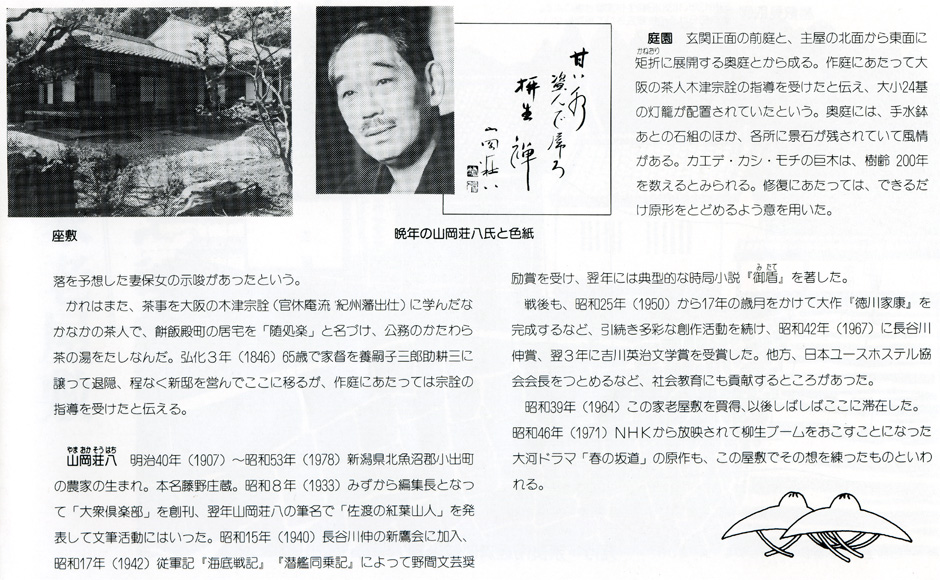 甘い水
柳生 禅
山岡荘八
座敷
晩年の山岡荘八氏と色紙
庭園 玄関正面の前庭と、主屋の北面から東面に
かねおり
矩折に展開する奥庭とから成る。作庭にあたって大
阪の茶人木津宗詮の指導を受けたと伝え、大小24基
の灯籠が配置されていたという。奥庭には、手水鉢
あとの石組のほか、各所に景石が残されていて風情
がある。カエデ・カシ・モチの巨木は、樹齢 200年
を数えるとみられる。修復にあたっては、できるだ
け原形をとどめるよう意を用いた。
落を予想した妻保女の示唆があったという。
かれはまた、茶事を大阪の木津宗詮(官休庵流 紀州藩出仕)に学んだな
かなかの茶人で、餅飯殿町の居宅を「随処楽」と名づけ、公務のかたわら
茶の湯をたしなんだ。弘化3年(1846)65歳で家督を養嗣子三郎助耕三に
譲って退隠、程なく新邸を営んでここに移るが、作庭にあたっては宗詮の
指導を受けたと伝える。
やまおかそうはち
山岡荘八 明治40年(1907)~昭和53年(1978)新潟県北魚沼郡小出町
の農家の生まれ。本名藤野庄蔵。昭和8年(1933)みずから編集長となっ
て「大衆倶楽部」を創刊、翌年山岡荘八の筆名で「佐渡の紅葉山人」を発
表して文筆活動にはいった。昭和15年(1940)長谷川伸の新鷹会に加入、
昭和17年(1942)従軍記『海底戦記』『潜艦同乗記』によって野間文芸奨
みたて
励賞を受け、翌年には典型的な時局小説『御盾』を著した。
戦後も、昭和25年(1950)から17年の歳月をかけて大作『徳川家康』を
完成するなど、引続き多彩な創作活動を続け、昭和42年(1967)に長谷川
伸賞、翌3年に吉川英治文学賞を受賞した。他方、日本ユースホステル協
会会長をつとめるなど、社会教育にも貢献するところがあった。
昭和39年(1964)この家老屋敷を買得、以後しばしばここに滞在した。
昭和46年(1971)NHKから放映されて柳生ブームをおこすことになった
大河ドラマ「春の坂道」の原作も、この屋敷でその想を練ったものといわ
れる。